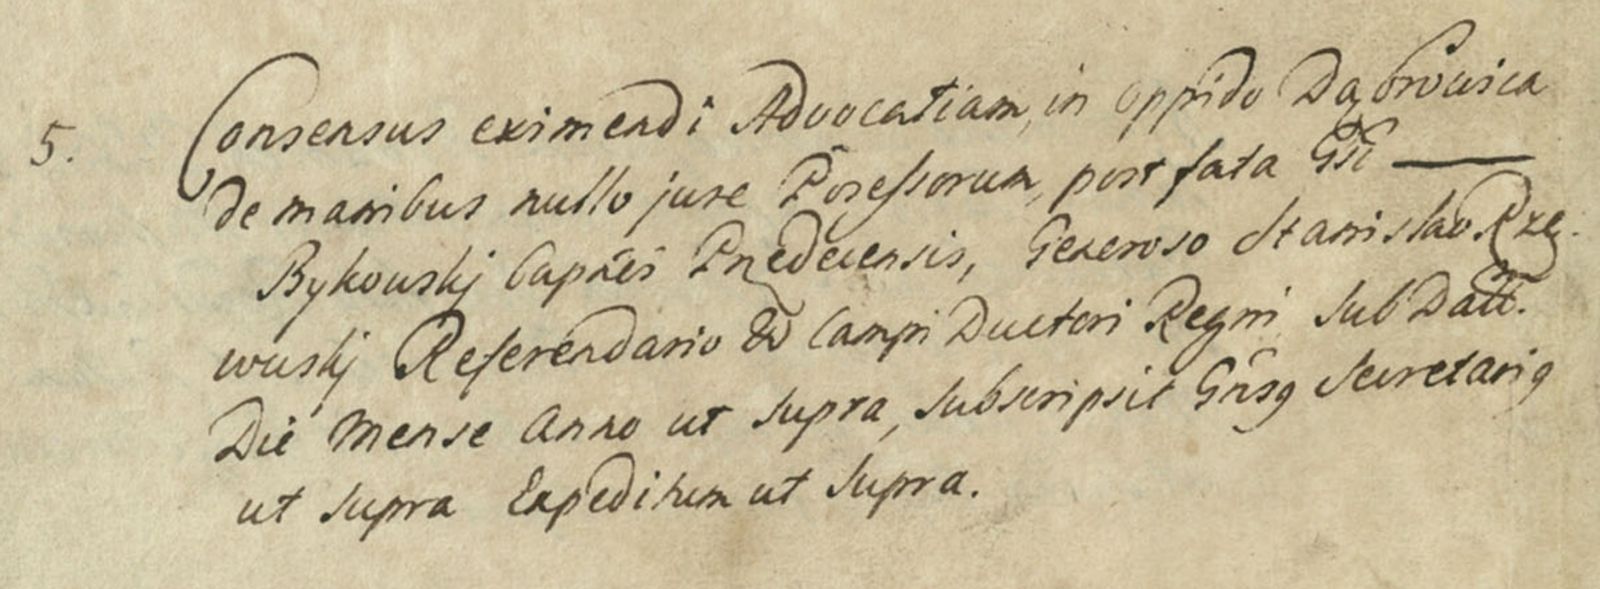 5. Consensus eximendi Advocatiam, in oppido Dąbrowica
de manibus nullo jure Possessorum, post fata Gsi —
Bykowskj Capnei Przedecensis, Generoso Stanislao Rze-
wuskj Referendario & Campi Ductori Regni Sub Datt.
Die Mense Anno ut supra, subscripsit Gnsq Secretariq
ut supra Expeditum ut supra.